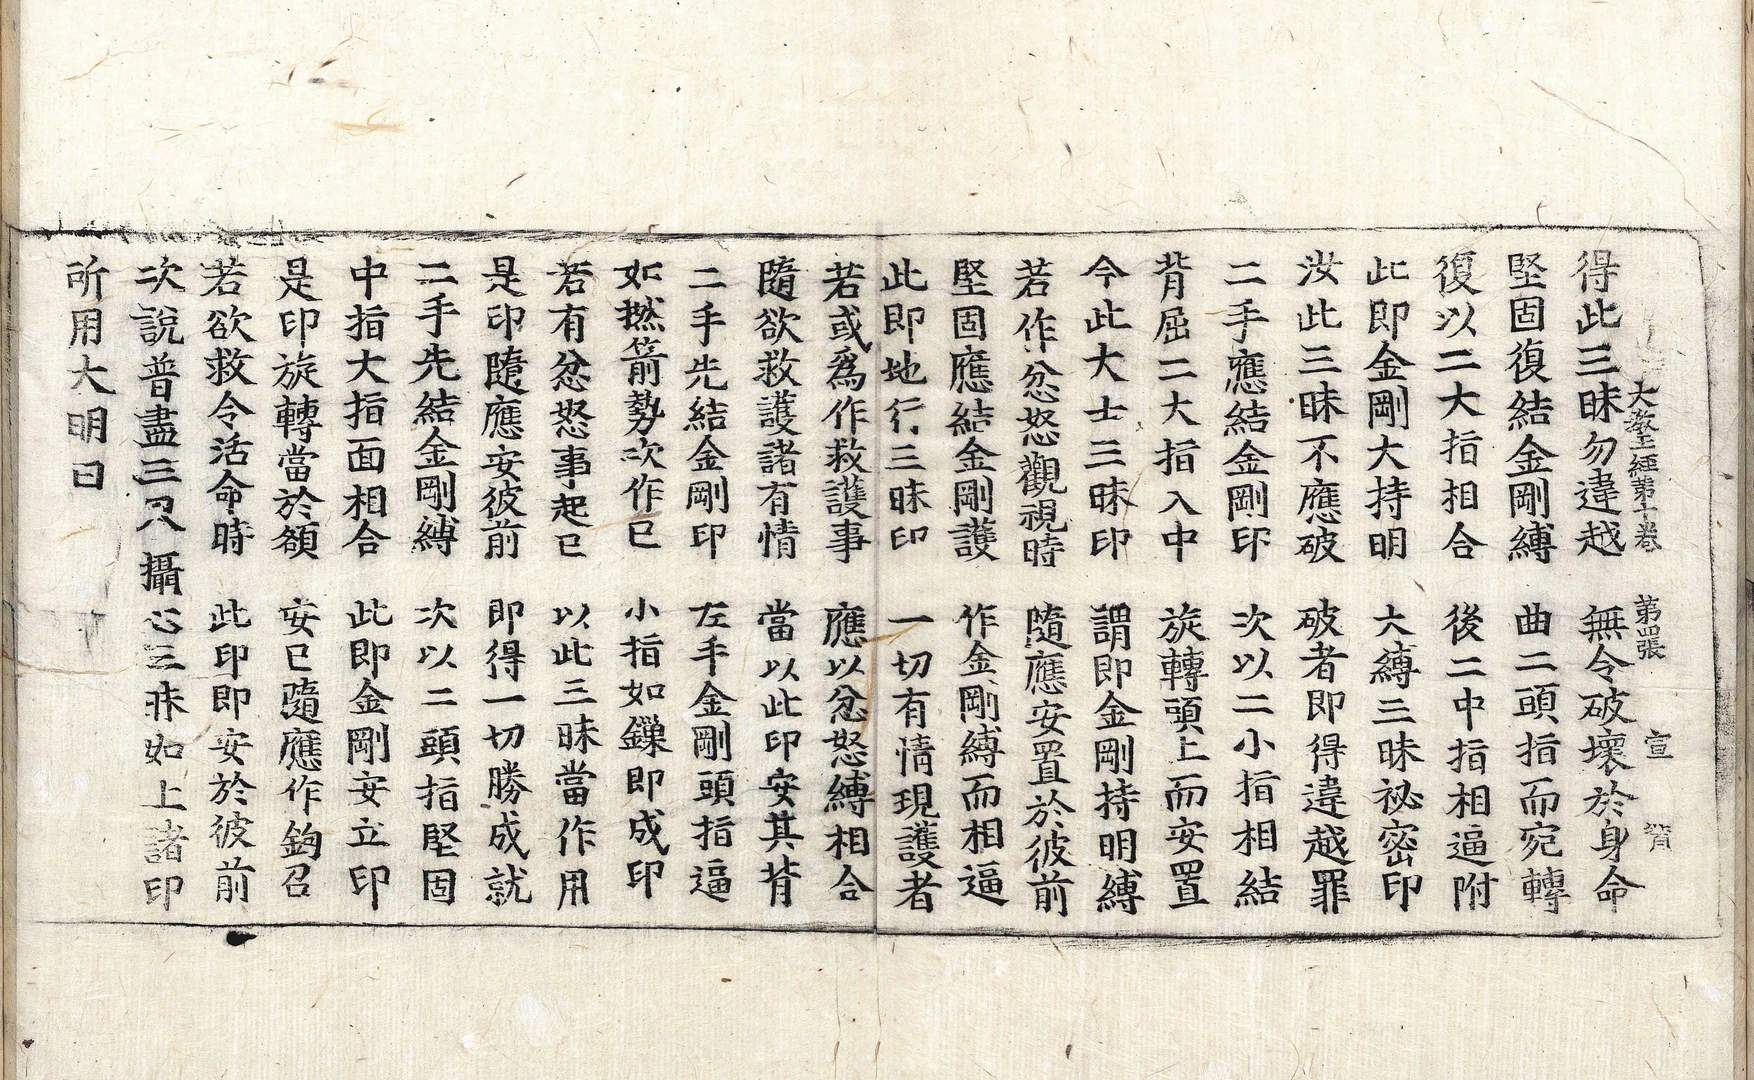 大教王經第十卷　第四張　宣　背
得此三昧勿違越　無令破壞於身命
堅固復結金剛縛　曲二頭指而宛轉
復以二大指相合　後二中指相逼附
此即金剛大持明　大縛三昧祕密印
汝此三昧不應破　破者即得違越罪
二手應結金剛印　次以二小指相結
背屈二大指入中　旋轉頭上而安置
今此大士三昧印　謂即金剛持明縛
若作忿怒觀視時　隨應安置於彼前
堅固應結金剛護　作金剛縛而相逼
此即地行三昧印　一切有情現護者
若或為作救護事　應以忿怒縛相合
隨欲救護諸有情　當以此印安其背
二手先結金剛印　左手金剛頭指逼
如撚箭勢次作已　小指如鏁即成印
若有忿怒事起已　以此三昧當作用
是印隨應安彼前　即得一切勝成就
二手先結金剛縛　次以二頭指堅固
中指大指面相合　此即金剛安立印
是印旋轉當於額　安已隨應作鉤召
若欲救令活命時　此印即安於彼前
次說普盡三叉攝心三昧如上諸印
所用大明曰